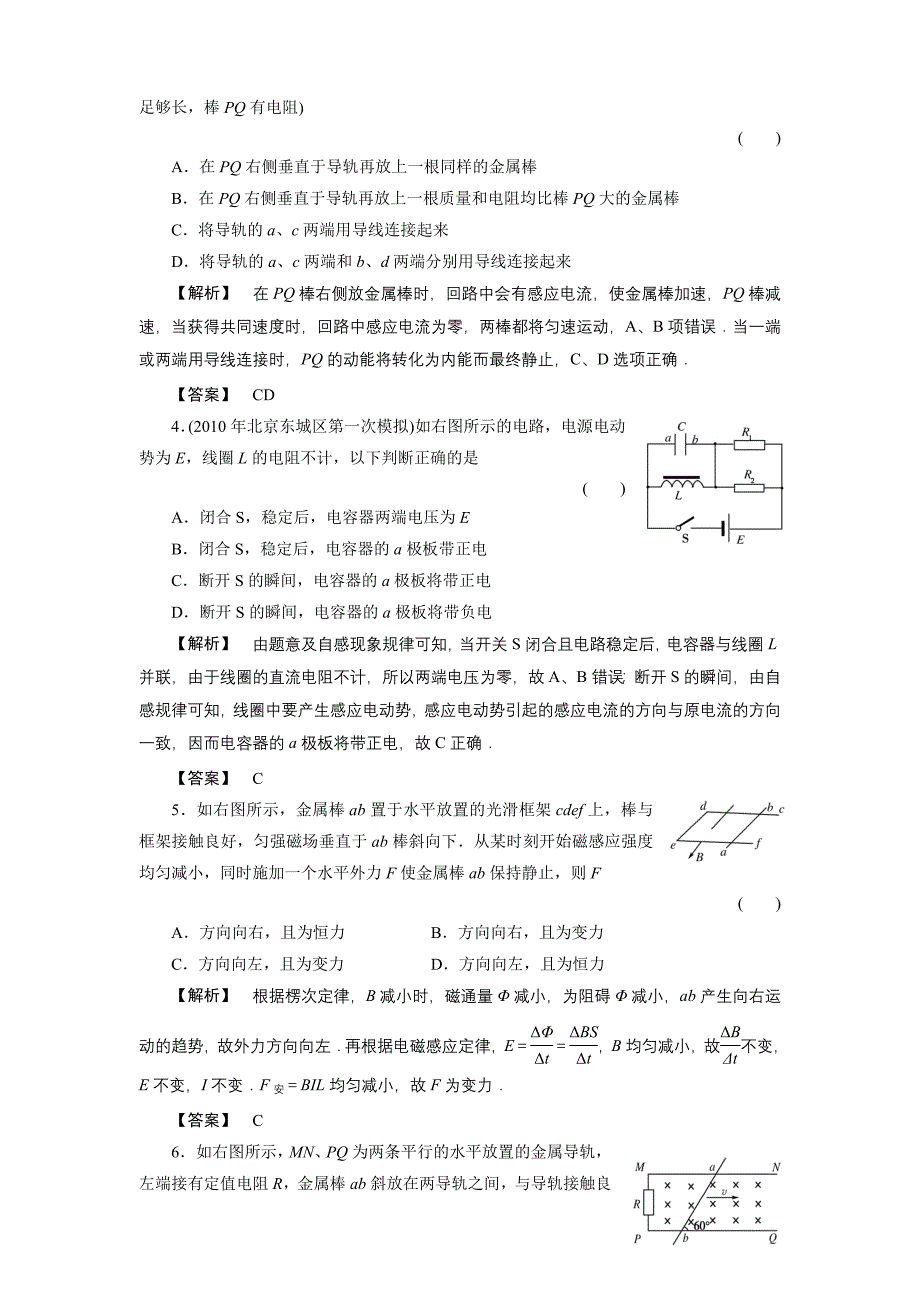 足够长，棒 PQ 有电阻)
(　　)
A．在 PQ 右侧垂直于导轨再放上一根同样的金属棒
B．在 PQ 右侧垂直于导轨再放上一根质量和电阻均比棒 PQ 大的金属棒
C．将导轨的 a、c 两端用导线连接起来
D．将导轨的 a、c 两端和 b、d 两端分别用导线连接起来
【解析】　在 PQ 棒右侧放金属棒时，回路中会有感应电流，使金属棒加速，PQ 棒减
速，当获得共同速度时，回路中感应电流为零，两棒都将匀速运动，A、B 项错误．当一端
或两端用导线连接时，PQ 的动能将转化为内能而最终静止，C、D 选项正确．
【答案】　CD
4．(2010 年北京东城区第一次模拟)如右图所示的电路，电源电动
势为 E，线圈 L 的电阻不计，以下判断正确的是
(　　)
C
a b R1
L R2
S E
A．闭合 S，稳定后，电容器两端电压为 E
B．闭合 S，稳定后，电容器的 a 极板带正电
C．断开 S 的瞬间，电容器的 a 极板将带正电
D．断开 S 的瞬间，电容器的 a 极板将带负电
【解析】　由题意及自感现象规律可知，当开关 S 闭合且电路稳定后，电容器与线圈 L
并联，由于线圈的直流电阻不计，所以两端电压为零，故 A、B 错误；断开 S 的瞬间，由自
感规律可知，线圈中要产生感应电动势，感应电动势引起的感应电流的方向与原电流的方向
一致，因而电容器的 a 极板将带正电，故 C 正确．
【答案】　C
5．如右图所示，金属棒 ab 置于水平放置的光滑框架 cdef 上，棒与
框架接触良好，匀强磁场垂直于 ab 棒斜向下．从某时刻开始磁感应强度
均匀减小，同时施加一个水平外力 F 使金属棒 ab 保持静止，则 F
(　　)
d b c
e B a f
A．方向向右，且为恒力　　B．方向向右，且为变力
C．方向向左，且为变力　　D．方向向左，且为恒力
【解析】　根据楞次定律，B 减小时，磁通量 Φ 减小，为阻碍 Φ 减小，ab 产生向右运
动的趋势，故外力方向向左．再根据电磁感应定律，E＝ΔΦ/Δt＝ΔBS/Δt，B 均匀减小，故ΔB/Δt不变，
E 不变，I 不变．F安＝BIL 均匀减小，故 F 为变力．
【答案】　C
6．如右图所示，MN、PQ 为两条平行的水平放置的金属导轨，
左端接有定值电阻 R，金属棒 ab 斜放在两导轨之间，与导轨接触良
M a N
R v
60°
P b Q